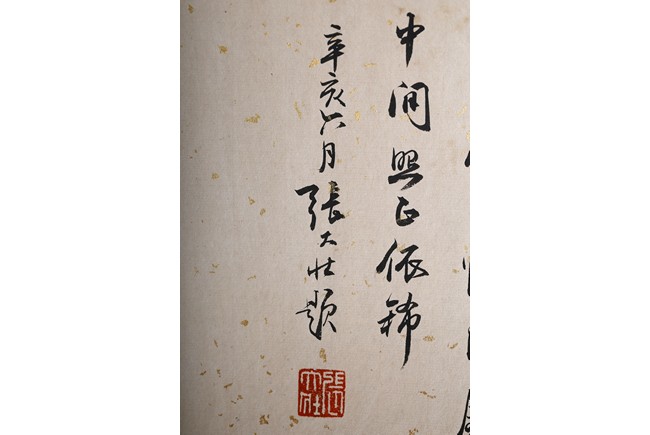 中间照正依稀
辛亥六月張大壮題
張大壯